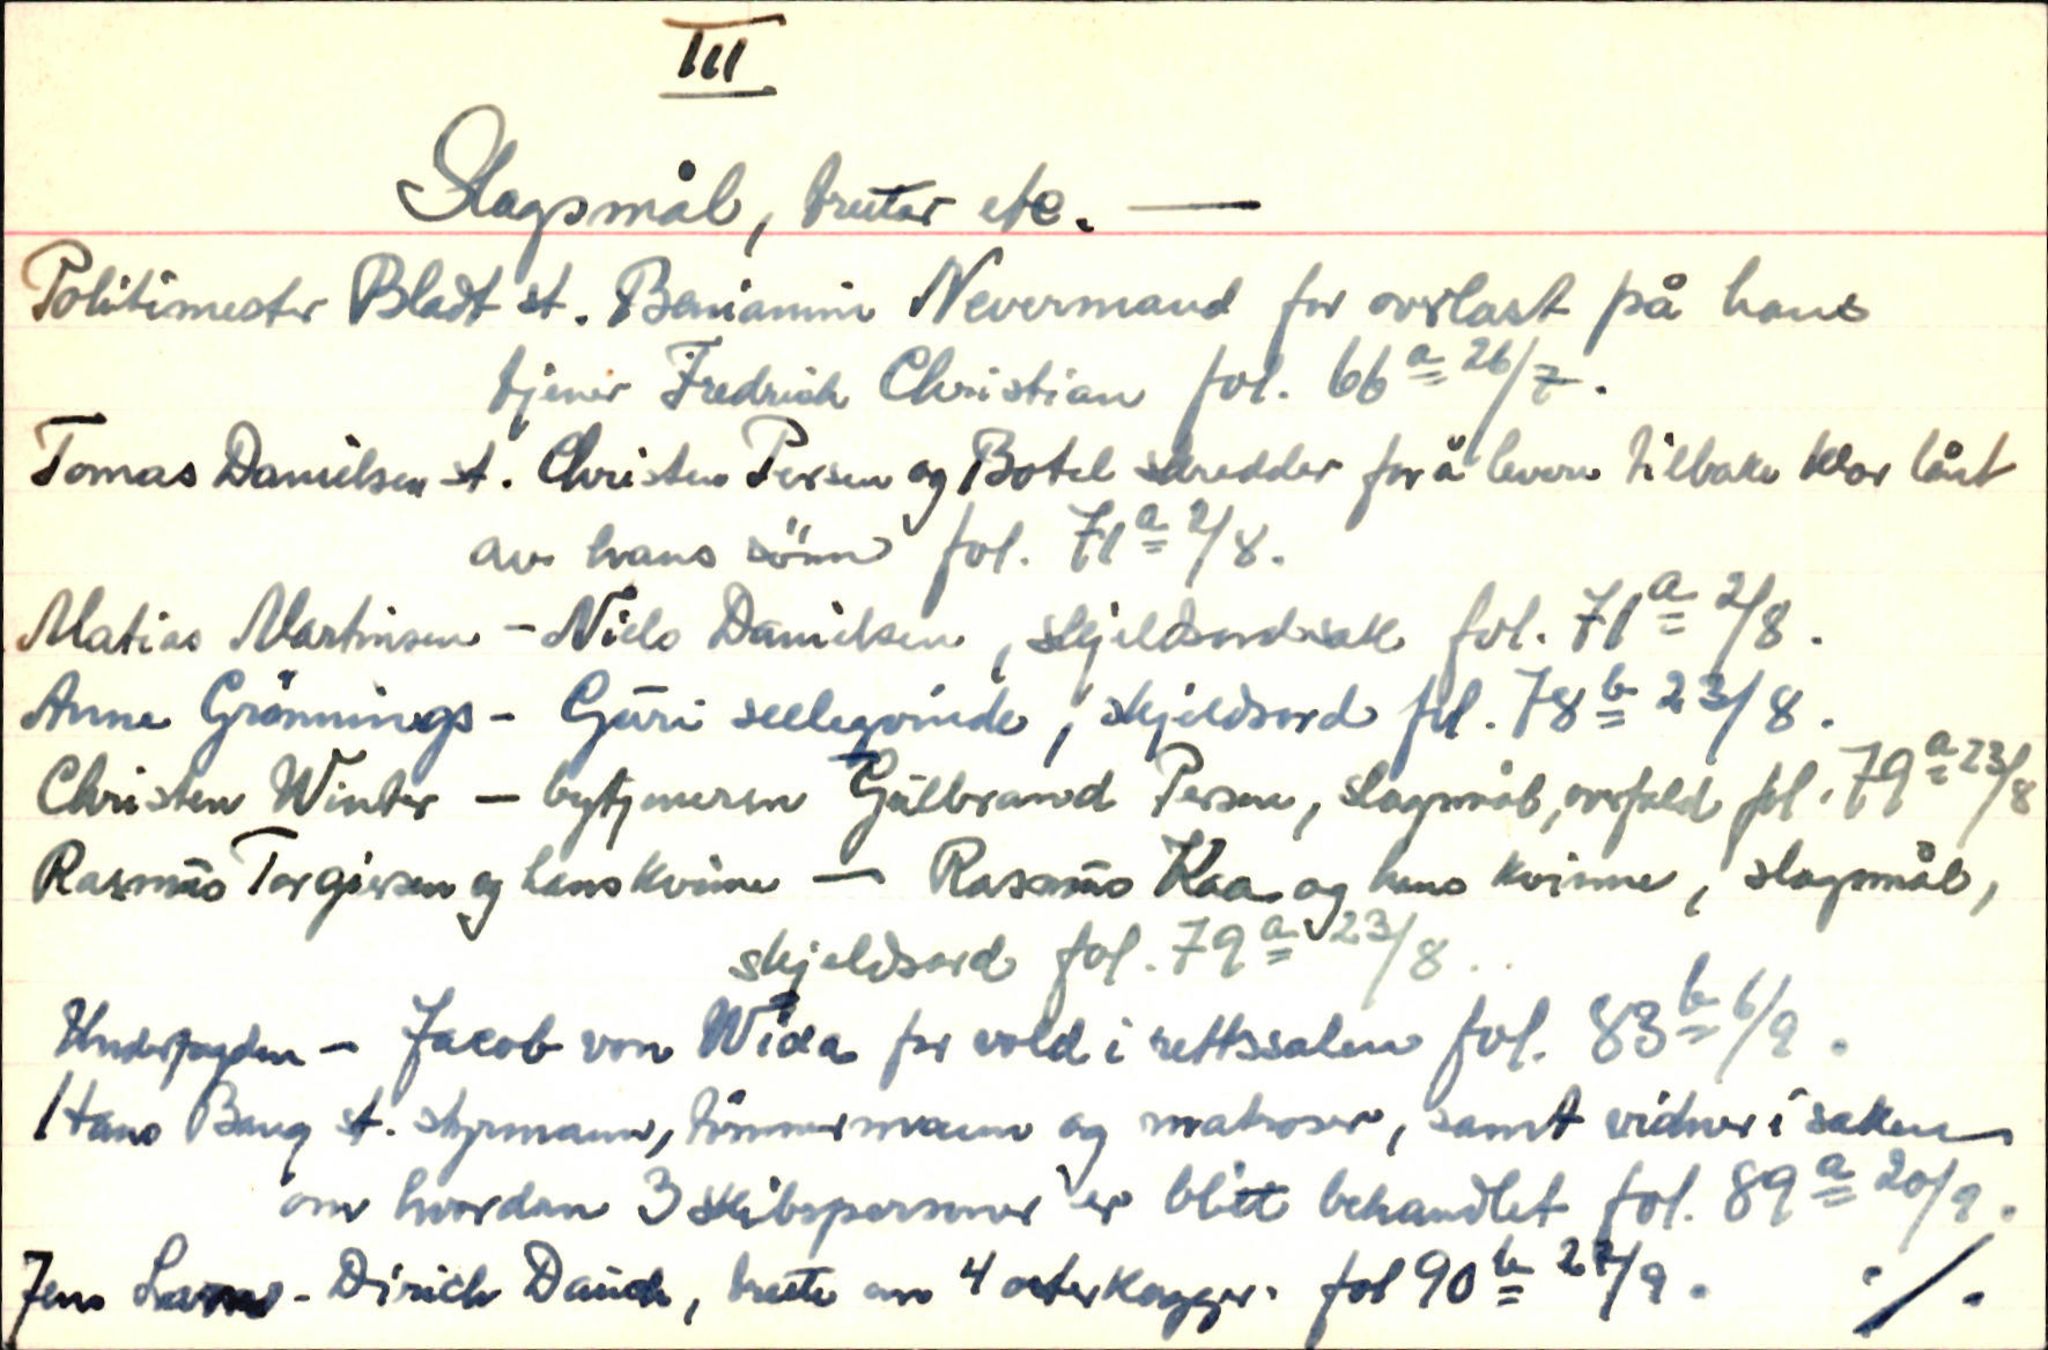 III
Slagsmål, tretter etc. —
Politimester Bladt st. Beniamin Nevermand for overlast på hans
tjener Fredrich Christian fol. 66a 26/7.
Tomas Danielsen st. Christen Persen og Botel skredder for å levere tilbake klær lånt
av hans sönn fol. 71a 2/8.
Matias Martinsen – Niels Danielsen, skjeldsordsak fol. 71a 2/8.
Anne Grönnings – Gŭri seelegvinde, skjeldsord fol. 78b 23/8.
Christen Winter – bytjeneren Gŭlbrand Persen, slagsmål, overfald fol. 79a 23/8
Rasmŭs Torgiersen og hans kvinne — Rasmŭs Kaa og hans kvinne, slagsmål,
skjeldsord fol. 79a 23/8.
Underfogden – Jacob von Wida for vold i rettssalen fol. 83b 6/9.
Hans Bang st. styrmann, tömmermann og matroser, samt vidner i saken
om hvordan 3 skibspersoner er blitt behandlet fol. 89a 20/9.
Jens – Dirich Daŭch, trette om 4 fol 90b 27/9. ./.